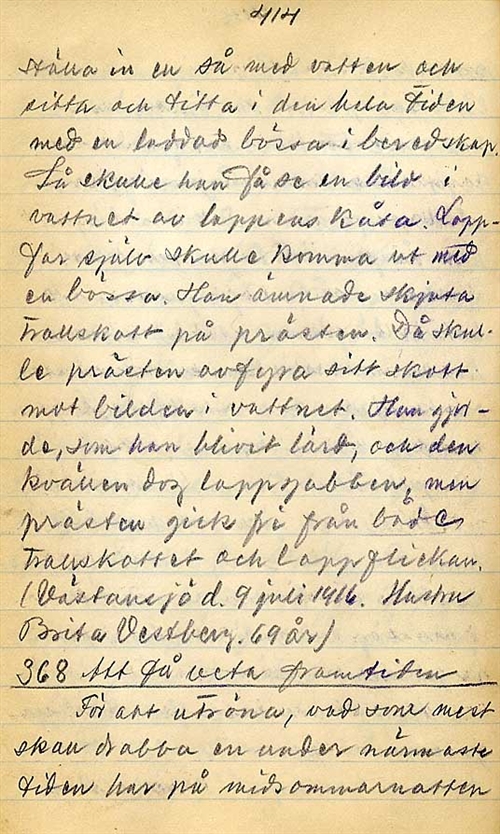 414
ställa in en så med vatten och
sitta och titta i den hela tiden
med en laddad bössa i beredskap.
Så skulle han få se en bild i
vattnet av lappens kåta. Lapp-
far själv skulle komma ut med
en bössa. Han ämnade skjuta
trollskott på prästen. Då skul-
le prästen avfyra sitt skott
mot bilden i vattnet. Han gjor-
de, som han blivit lärd, och den
kvällen dog lappgubben, men
prästen gick fri från både
trollskottet och lappflickan.
(Västansjö d. 9 juli 1916. Hustru
Brita Vestberg. 69 år)
368 Att få veta framtiden
För att utröna, vad som mest
skall drabba en under närmaste
tiden har på midsommarnatten